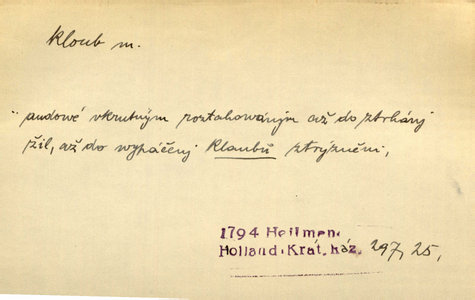 kloub m.
„ audowé vkrutným roztahowáním až do ztrhánj
žil, až do wypáčenj klaubů ztrýzněni,
1794 Heilman.
Holland.Krát.ház. 297, 25,